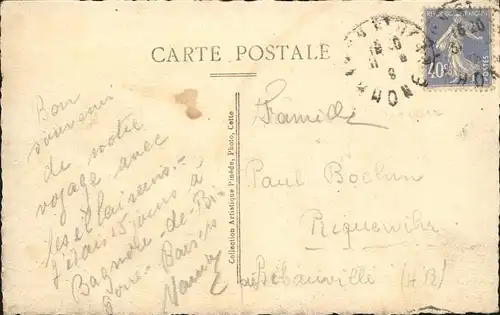 CARTE POSTALE
Bon
souvenir
de notre
voyage avec
les éclaireurs.-
J'étais 15 jours à
Bagnols-de-Bi-
Baisers
Collection Artistique Pinède, Photo, Cette
Famille
Paul Boehm
Riquewihr
Ribeauvillé (H R)
40c
POSTES